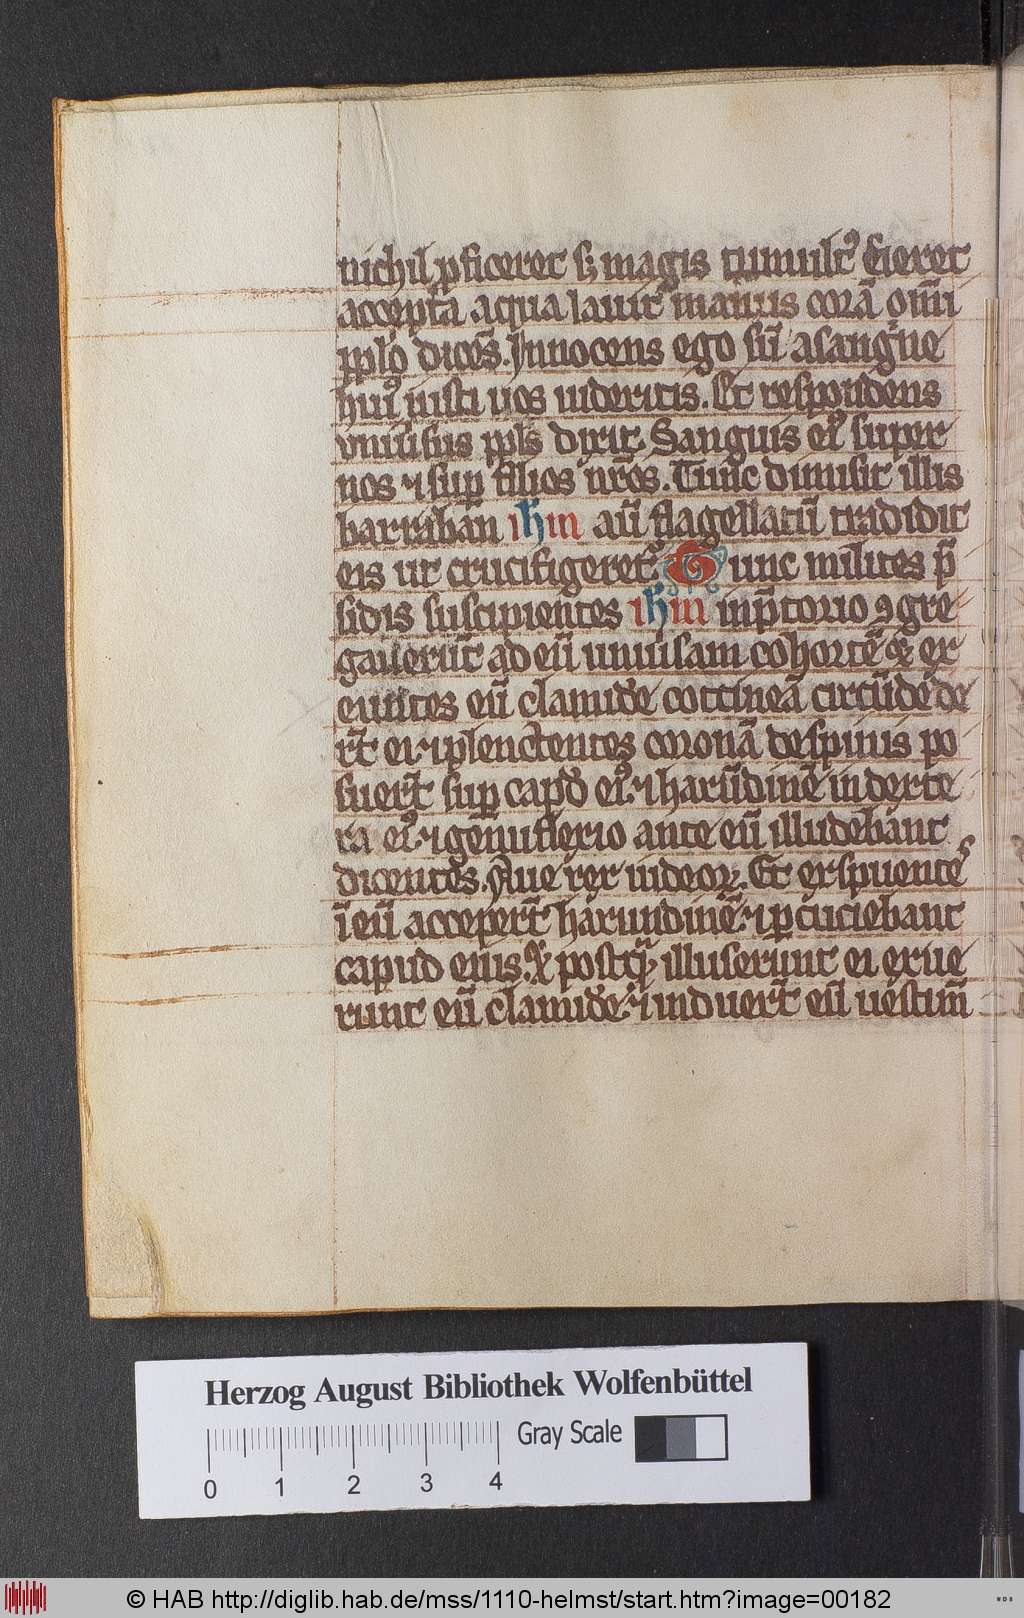 nichil ꝓficeret sꝫ magis tumultꝰ fieret
accepta aqua lauit manus corā om̄i
ppl̄o dicēs. Jnnocens ego sū asangͥne
huiꝰ iusti uos uideritis. Et respondens
vniūsus ppl̄s dixit. Sanguis eiꝰ super
nos ⁊ suꝑ filios nr̄os. Tūc dimisit illis
barraban ihm aū flagellatū tradidit
eis ut crucifigeret᷑. Tunc milites p̄
sidis suscipientes ihm in p̄torio ꝯgre
gauerūt ad eū uniūsam cohortē ⁊ ex
euntes eū clamide coccineā circūdede
rt̄ ei ⁊ plenctentes coronā despinis po
suert̄ suꝑ capud eiꝰ ⁊ harūdinē in dexte
ra eiꝰ ⁊ genuflexo ante eū illudebant
dicentes. Aue rex iudeoꝝ. Et exspuentes
ī eū accepert̄ harundinē ⁊ ꝑcuciebant
capud eius. ⁊ postqͣ illuserunt ei exue
runt eū clamide ⁊ induert̄ eū uestim̄
Herzog August Bibliothek Wolfenbüttel
Gray Scale
0 1 2 3 4
© HAB http://diglib.hab.de/mss/1110-helmst/start.htm?image=00182